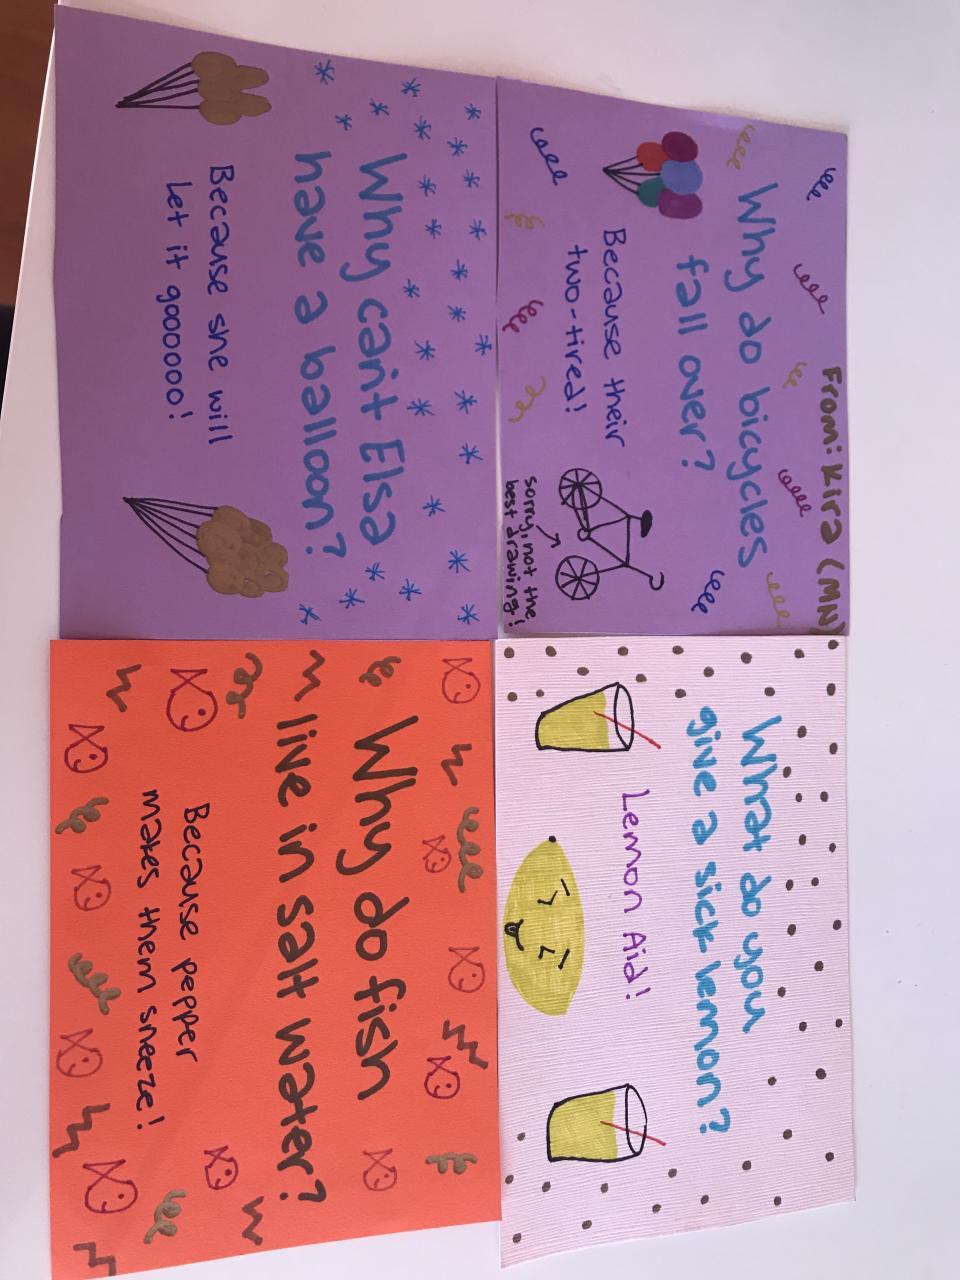 From: Kira (MN)
Why do bicycles
fall over?
Because their
two-tired!
sorry, not the
best drawing!
What do you
give a sick lemon?
Lemon Aid!
Why can't Elsa
have a balloon?
Because she will
Let it goooooo!
Why do fish
live in salt water?
Because pepper
makes them sneeze!